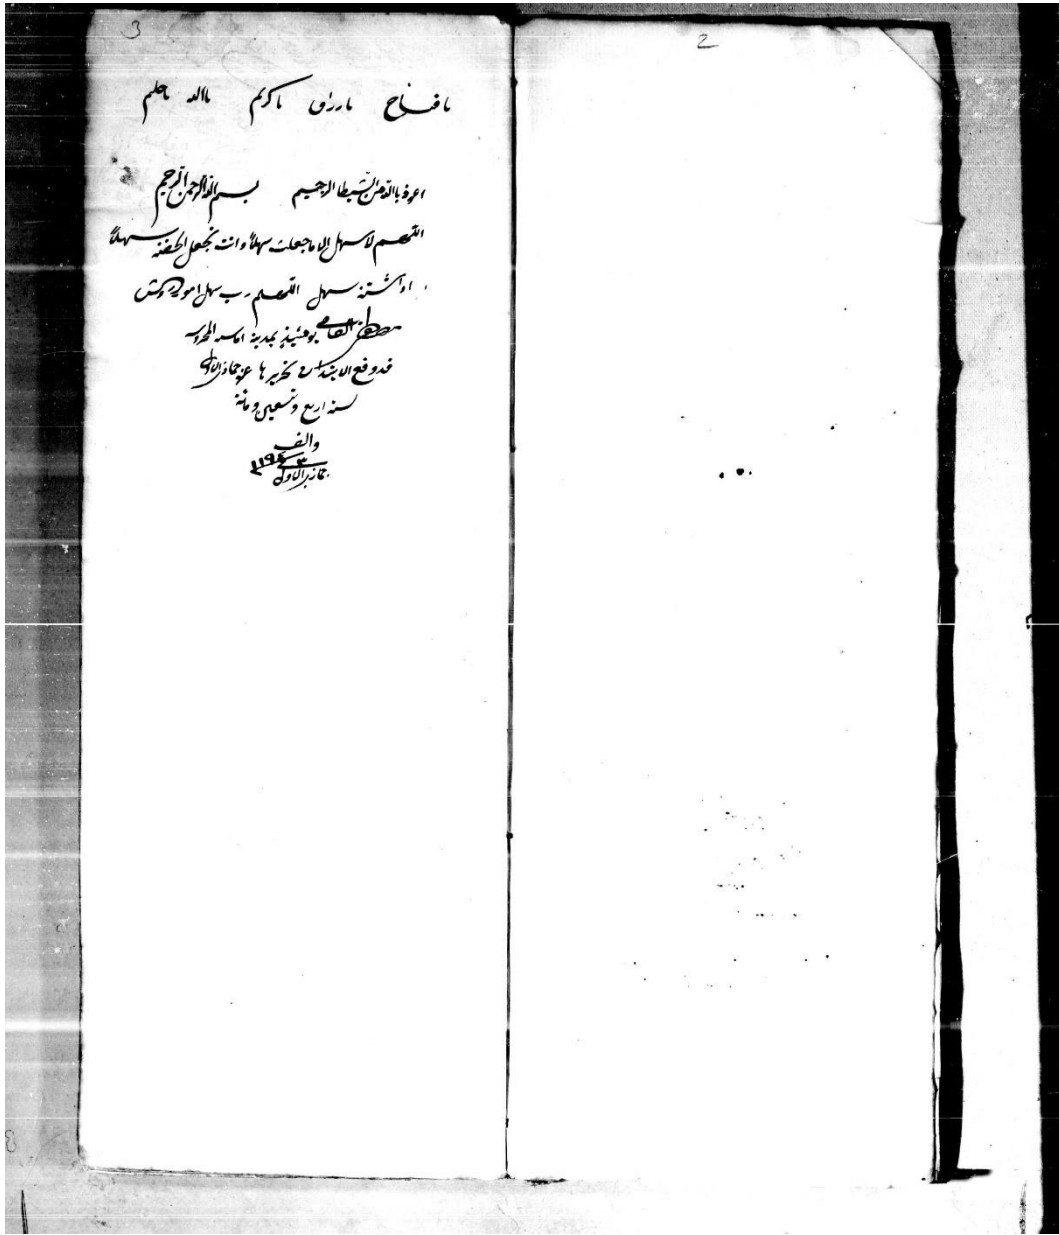 3
2
يا فتاح يا رزاق يا كريم يا الله يا حليم
اعوذ بالله من الشيطا الرجيم بسم الله الرحمن الرحيم
اللهم لا سهل الا ما جعلت سهلاً وانت تجعل سهلاً
سهل اللهم رب سهل
مصطفى القاضي يومئيذٍ بمدينة اماسيه المحروسه
قد وقع الابتداء في تحريرها غرة جماذى الاولى
لسنة اربع وتسعين ومائة
والف
١١٩٤
جماذى الاولى